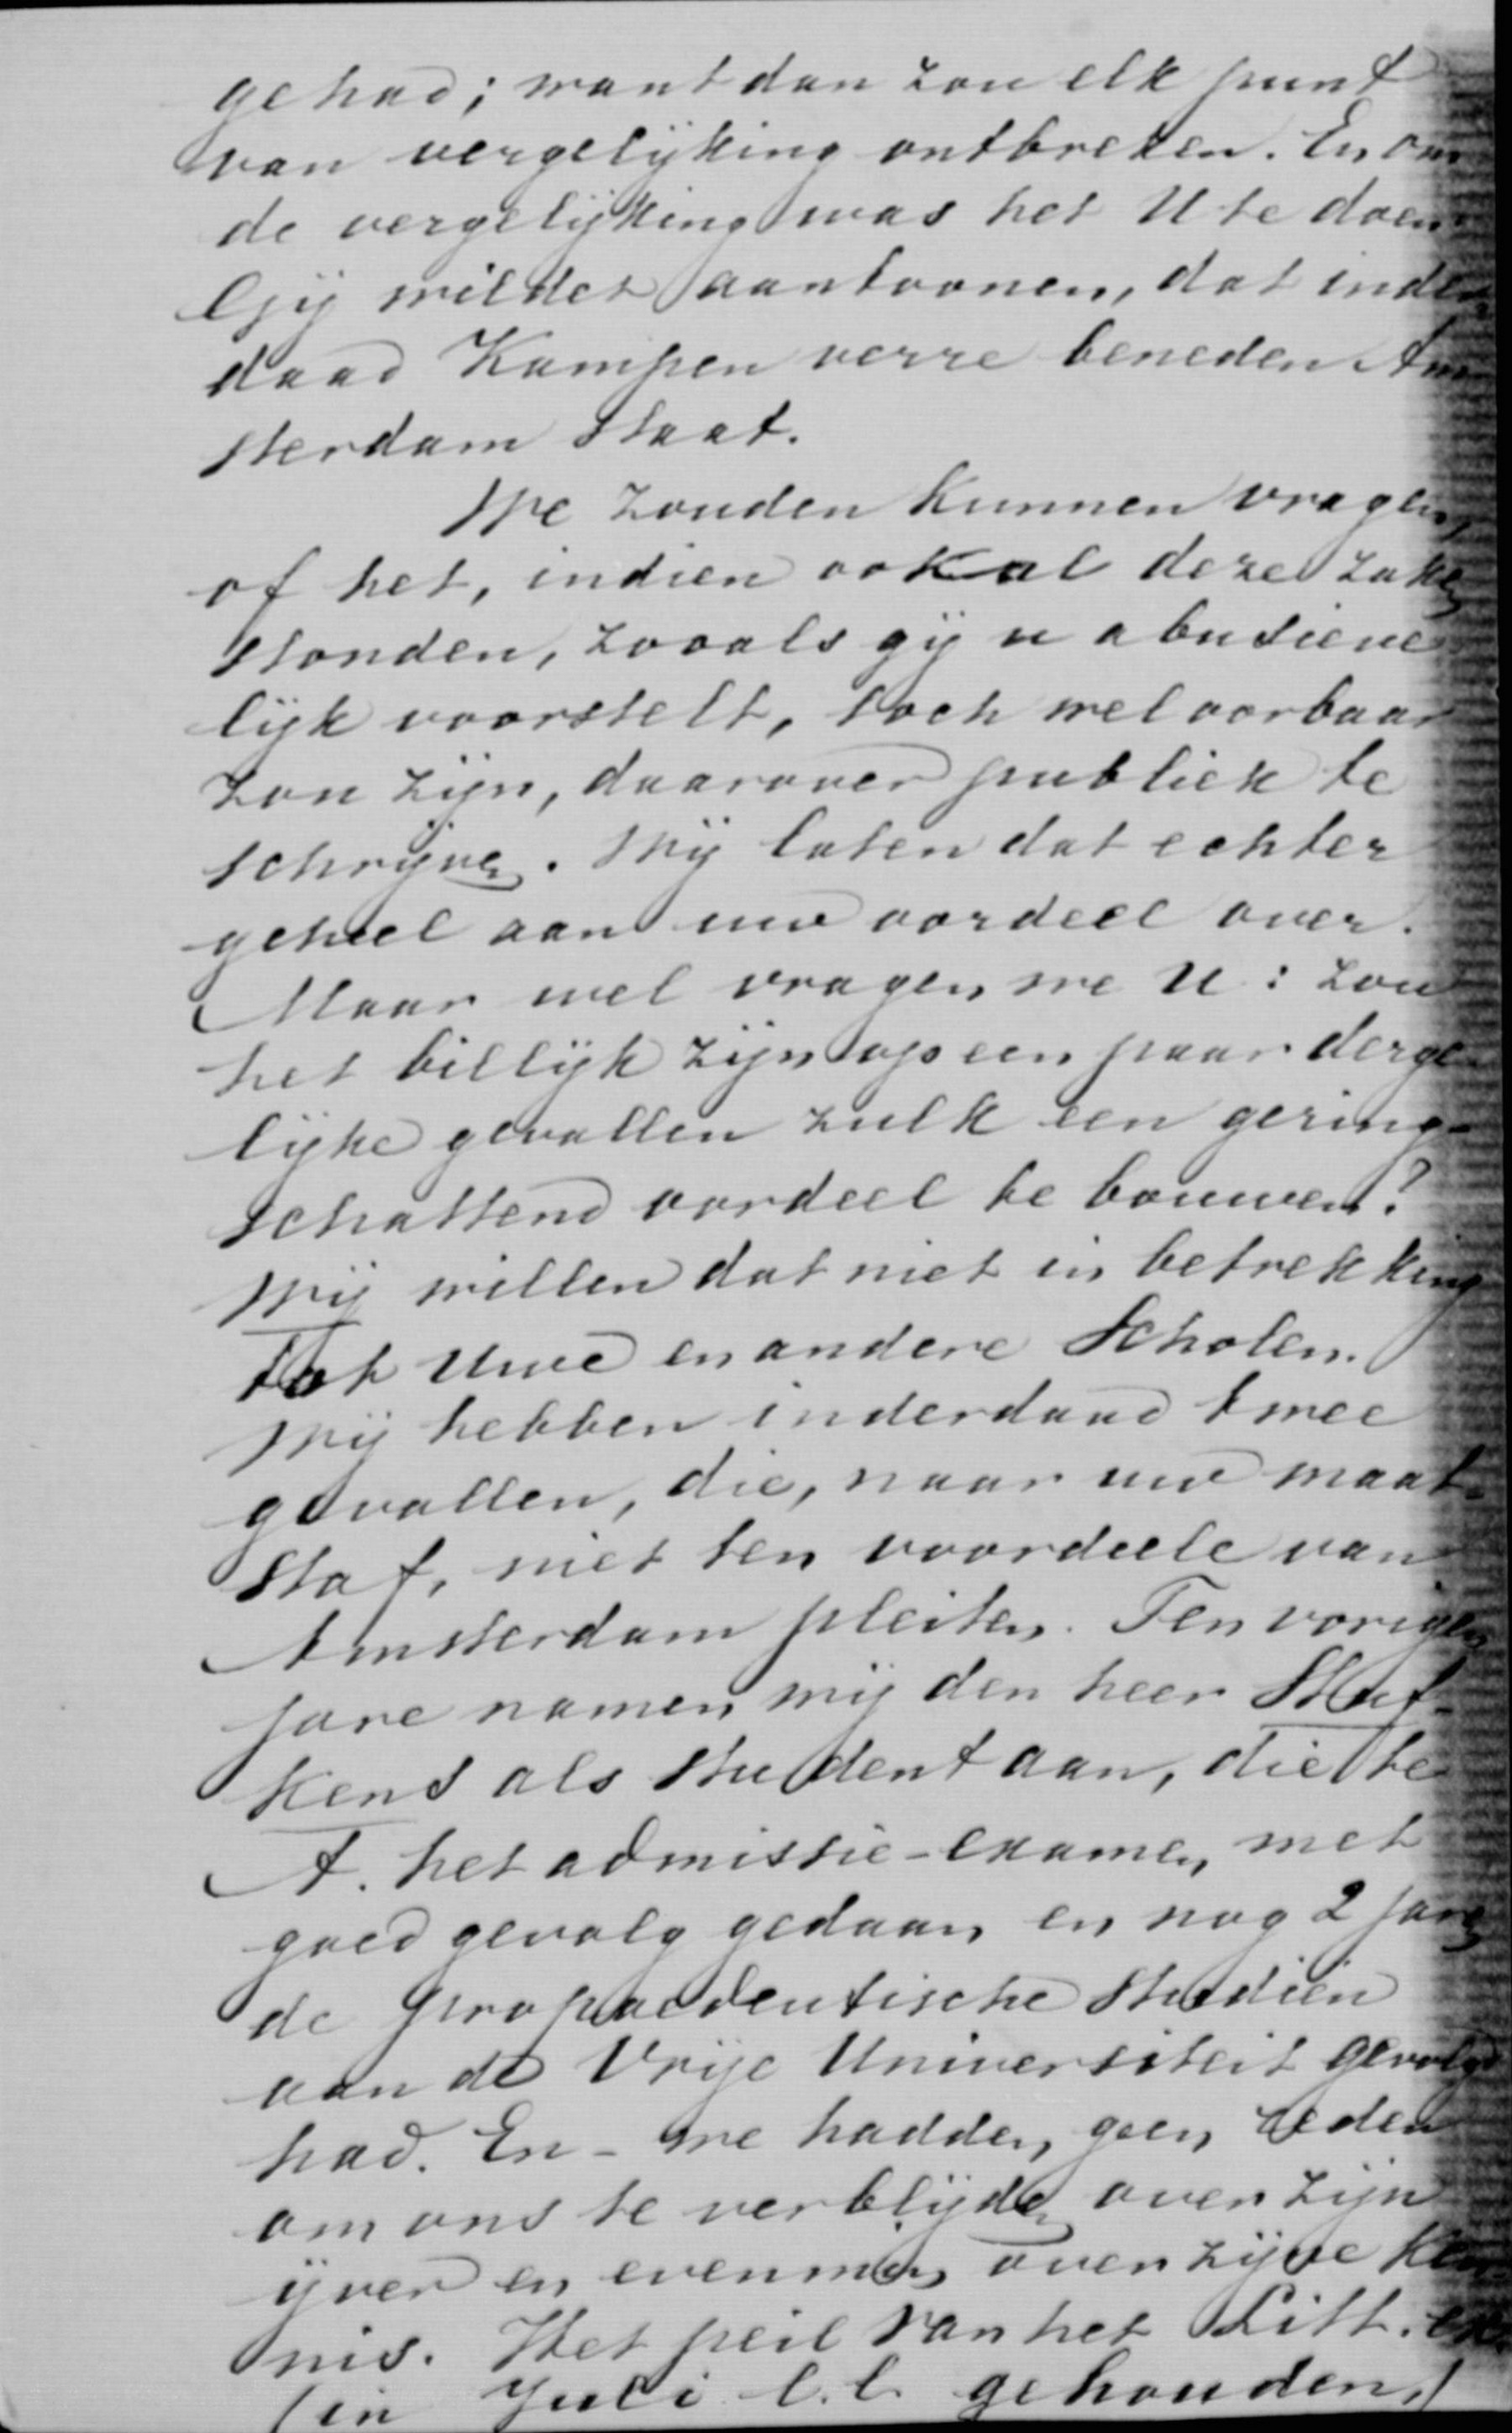 gehad; want dan zou elk punt
van vergelijking ontbreken. En om
de vergelijking was het U te doen.
Gij wildet aantoonen, dat inder
daad Kampen verre beneden Am
sterdam staat.
We zouden kunnen vragen,
of het, indien ook al deze zaken
stonden, zooals gij u abusieve
lijk voorstelt, toch wel oorbaar
zou zijn, daarover publiek te
schrijven. Wij laten dat echter
geheel aan uw oordeel over.
Maar wel vragen we U: zou
het billijk zijn op een paar derge
lijke gevallen zulk een gering-
schattend oordeel te bouwen?
Wij willen dat niet in betrekking
tot Uwe en andere Scholen.
Wij hebben inderdaad twee
gevallen, die, naar uw maat-
staf, niet ten voordeele van
Amsterdam pleiten. Ten vorigen
jare namen wij den heer
als student aan, die te
A. het admissie-examen met
goed gevolg gedaan en nog 2 jaren
de propaedeutische studiën
aan de Vrije Universiteit gevolgd
had. En - we hadden geen reden
om ons te verblijden over zijn
ijver en evenmin over zijne ken
nis. Het peil van het Litt. ex.
(in Juli l.l. gehouden)